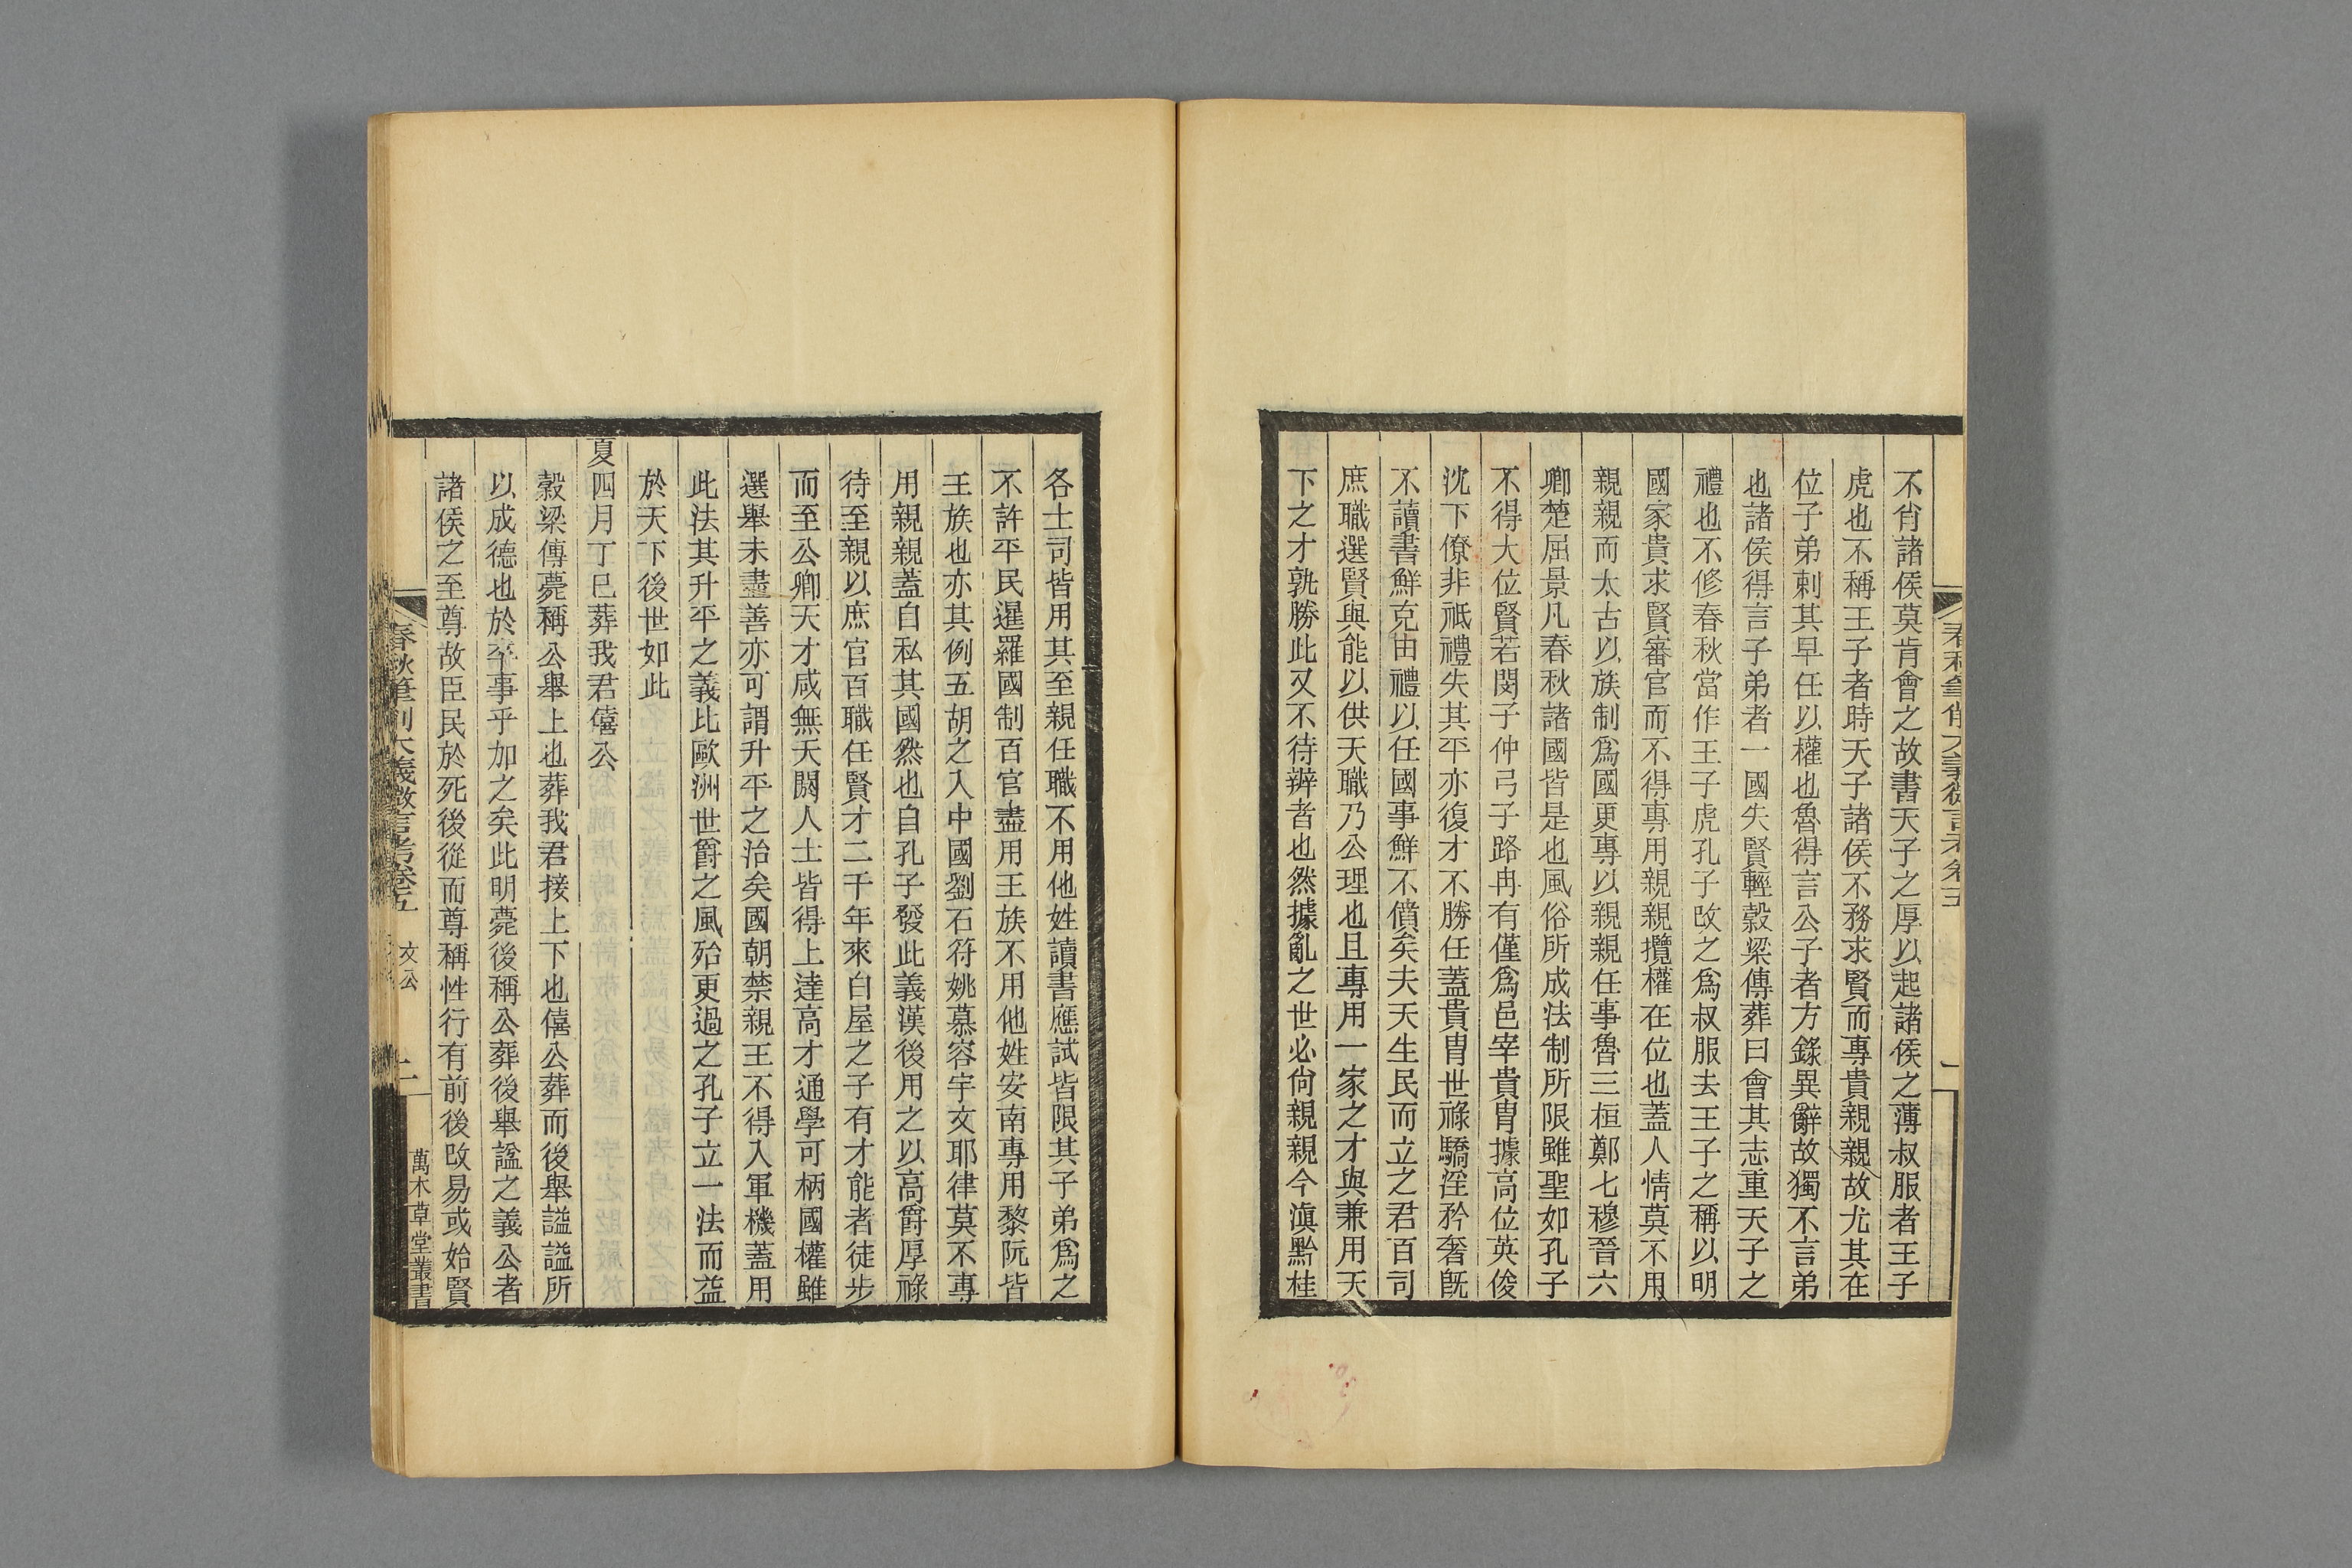 不肖諸侯莫肯會之故書天子之厚以起諸侯之薄叔服者王子
虎也不稱王子者時天子諸侯不務求賢而專貴親親故尤其在
位子弟刺其早任以權也魯得言公子者方錄異辭故獨不言弟
也諸侯得言子弟者一國失賢輕穀梁傳葬曰會其志重天子之
禮也不修春秋當作王子虎孔子改之爲叔服去王子之稱以明
國家貴求賢審官而不得專用親親攬權在位也蓋人情莫不用
親親而太古以族制爲國更專以親親任事魯三桓鄭七穆晉六
卿楚屈景凡春秋諸國皆是也風俗所成法制所限雖聖如孔子
不得大位賢若閔子仲弓子路冉有僅爲邑宰貴胄據高位英俊
沈下僚非祗禮失其平亦復才不勝任蓋貴胄世祿驕淫矜奢旣
不讀書鮮克由禮以任國事鮮不僨矣夫天生民而立之君百司
庶職選賢與能以供天職乃公理也且專用一家之才與兼用天
下之才孰勝此又不待辨者也然據亂之世必尙親親今滇黔桂
各土司皆用其至親任職不用他姓讀書應試皆限其子弟爲之
不許平民暹羅國制百官盡用王族不用他姓安南專用黎阮皆
王族也亦其例五胡之入中國劉石符姚慕容宇文耶律莫不專
用親親蓋自私其國然也自孔子發此義漢後用之以高爵厚祿
待至親以庶官百職任賢才二千年來白屋之子有才能者徒步
而至公卿天才咸無夭閼人士皆得上達高才通學可柄國權雖
選舉未盡善亦可謂升平之治矣國朝禁親王不得入軍機蓋用
此法其升平之義比歐洲世爵之風殆更過之孔子立一法而益
於天下後世如此
夏四月丁巳葬我君僖公
穀梁傳薨稱公舉上也葬我君接上下也僖公葬而後舉諡諡所
以成德也於卒事乎加之矣此明薨後稱公葬後舉諡之義公者
諸侯之至尊故臣民於死後從而尊稱性行有前後改易或始賢
春秋筆削大義微言考卷五 文公 二 萬木草堂叢書